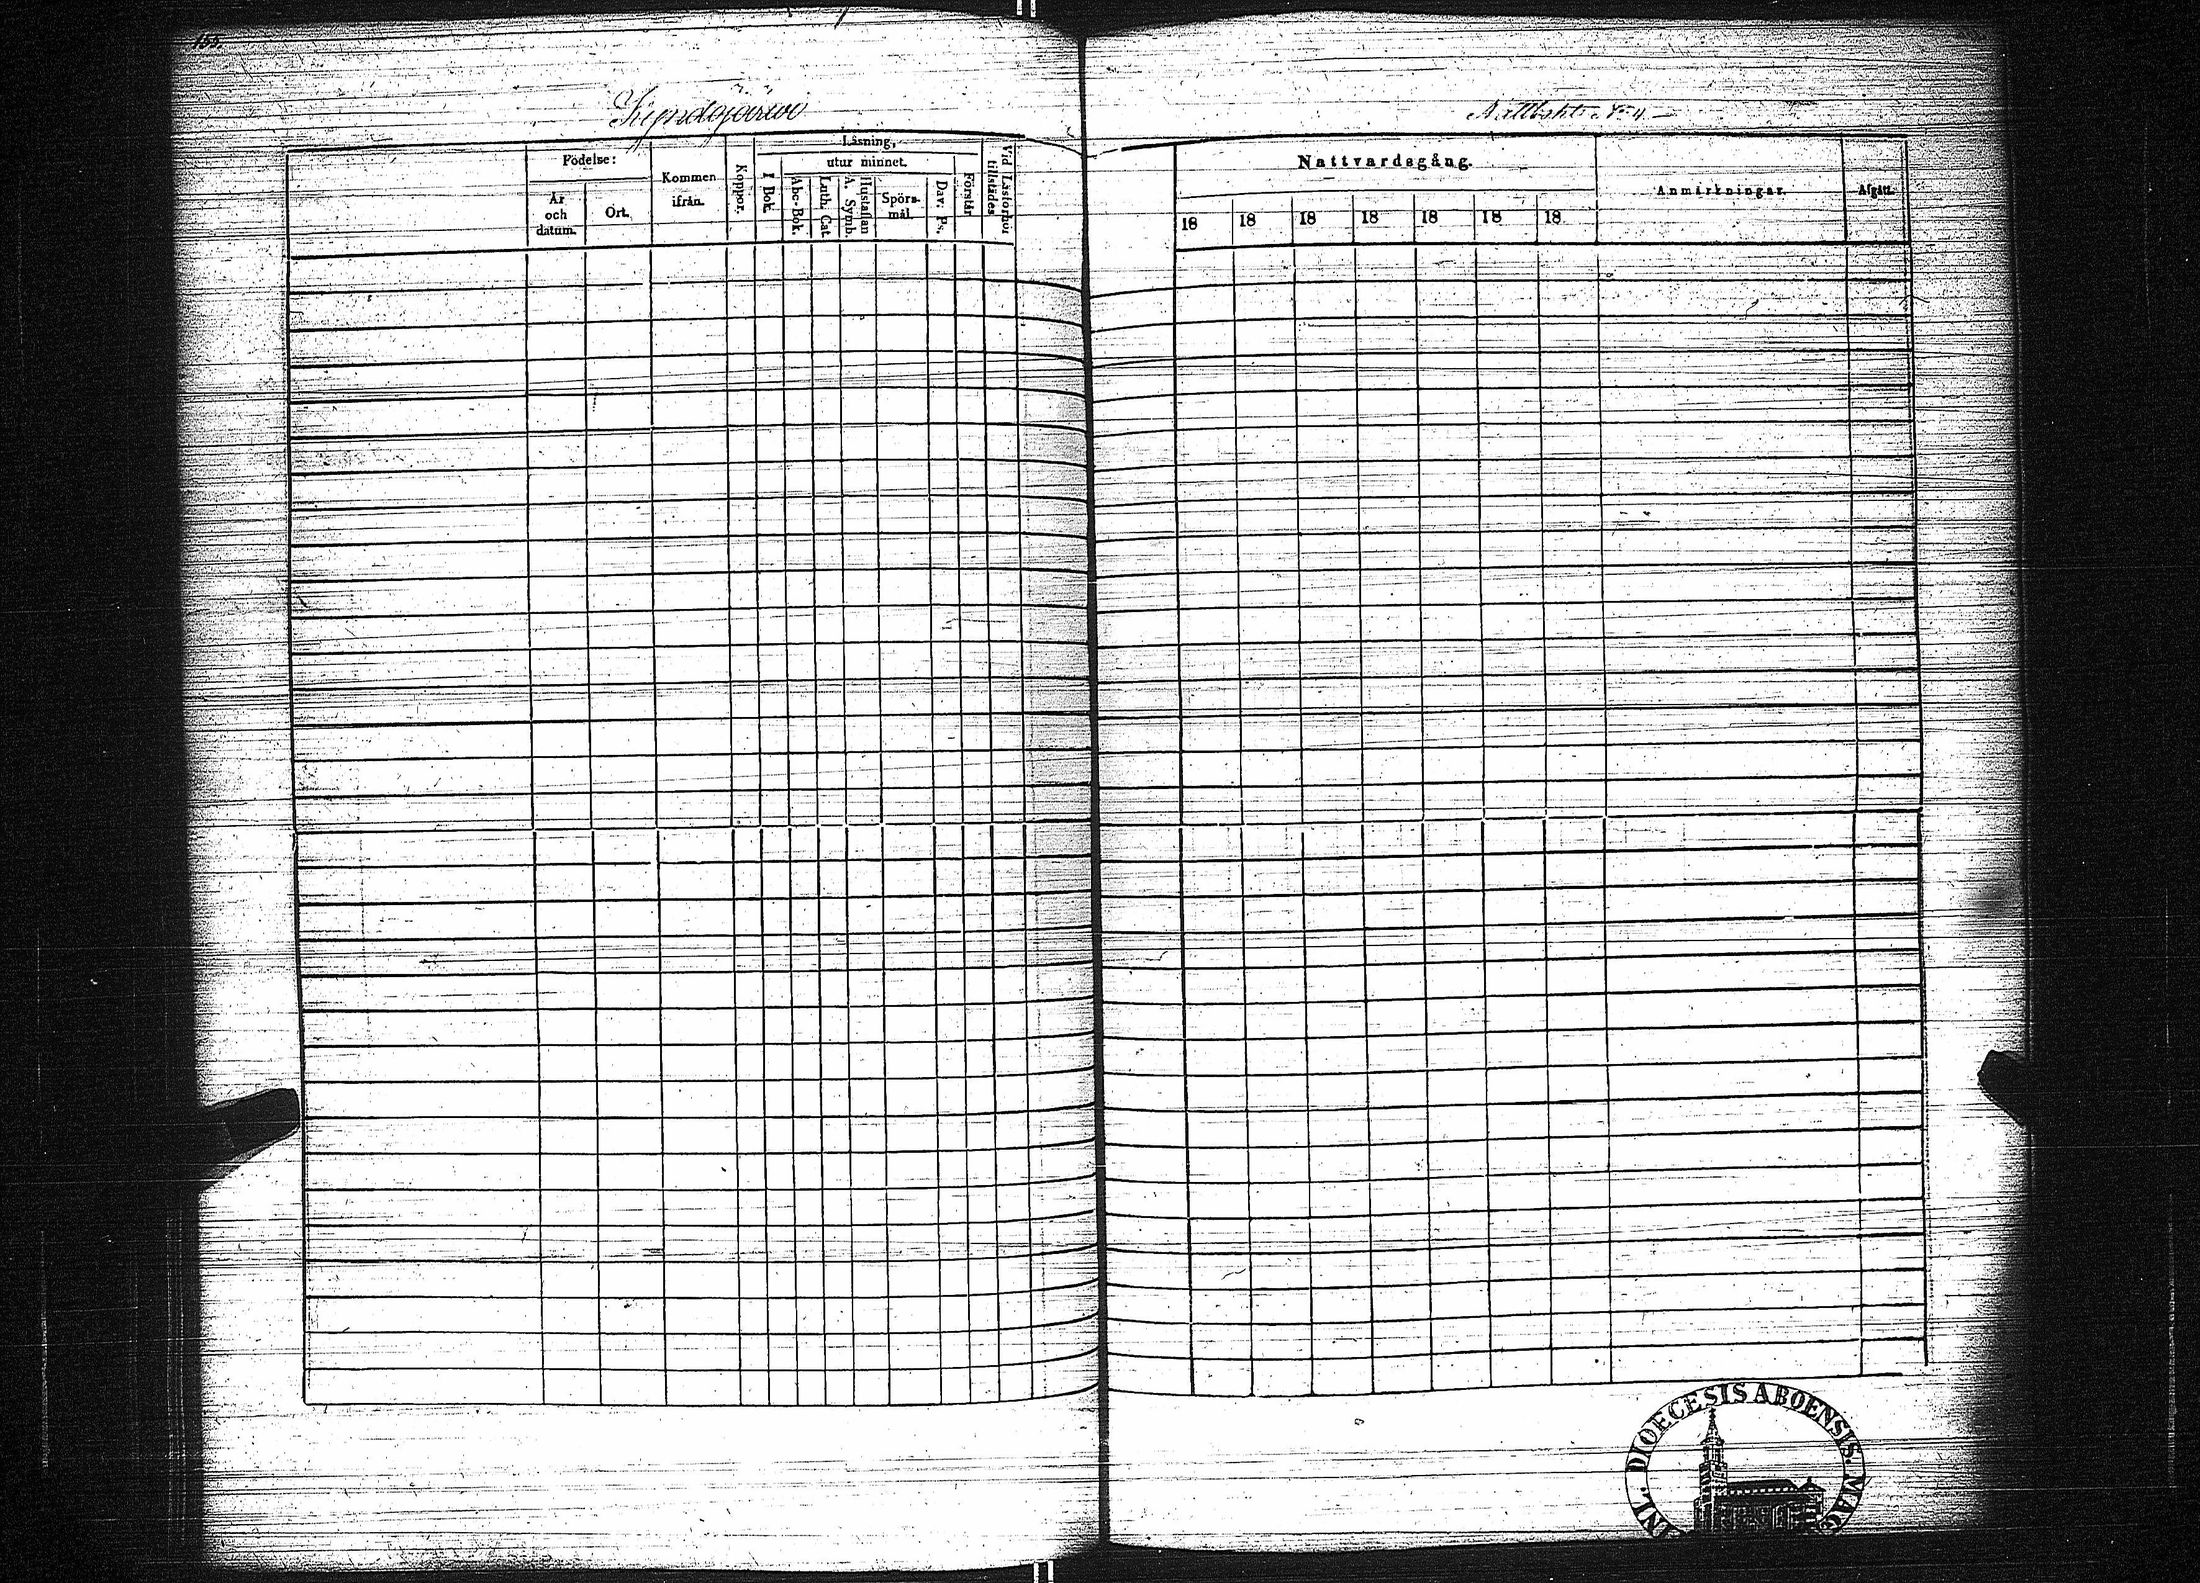 Födelse:
År och datum.
Ort.
Kommen ifrån.
Koppor.
Läsning,
utur minnet.
I Bok.
Abc-Bok.
Luth. Cat.
A. Symb.
Hustaflan
Spörs-mål.
Dav. Ps.
Förstår
Vid Läsförhör tillstädes
Nattvardsgång.
18 18 18 18 18 18 18
Anmärkningar.
Afgått.
DIOECESIS ABOENSIS. MAG
INL.